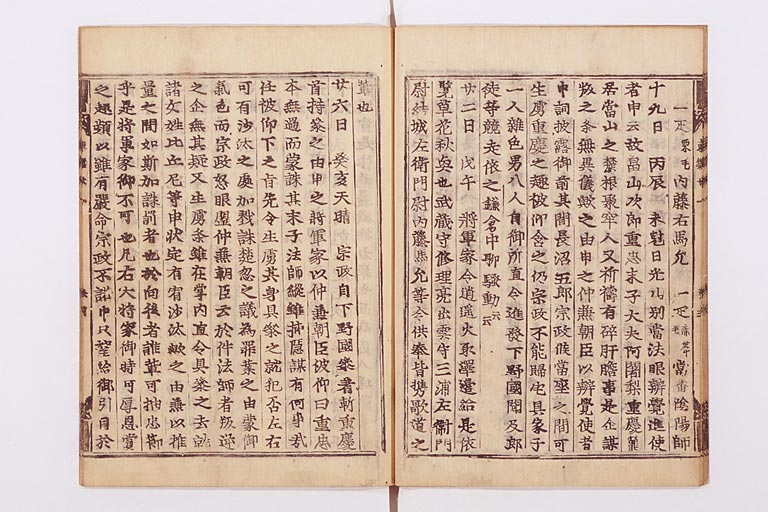 一疋栗毛内藤右馬允 一疋葦毛 當番陰陽師
十九日 丙辰 未尅日光山別當法眼辨覺進使
者申云故畠山次郎重忠末子大夫阿闍梨重慶籠
居當山之麓根聚牢人又祈禱有碎肝膽事是企謀
叛之条無異儀歟之由申之仲兼朝臣以辨覺使者
申詞披露御前其間長沼五郎宗政候當座之間可
生虜重慶之趣被仰含之仍宗政不能歸宅具家子
一人雜色男八人自御所直令進發下野國聞及郎
徒等競走依之鎌倉中聊騒動云云
廿二日 戊午 將軍家令逍遥火取澤邊給是依
覽草花秋興也武蔵守修理亮出雲守三浦左衛門
尉結城左衛門尉内藤馬允等令供奉皆携歌道之
輩也
廿六日 癸亥天晴 宗政自下野國參着斬重慶
首持參之由申之將軍家以仲兼朝臣被仰曰重忠
本無過而蒙誅其末子法師縱雖挿隠謀有何事哉
任被仰下之旨先令生虜其身具參之就犯否左右
可有沙汰之處加戮誅楚忽之議為罪業之由蒙御
氣色而宗政怒眼盟仲兼朝臣云於件法師者叛逆
之企無其疑又生虜条雖在掌内直令具參之者就
諸女姓比丘尼等申状定有宥沙汰歟之由兼以推
量之間如斯加誅罰者也於向後者誰輩可抽忠節
乎是將軍家御不可也凡右大將家御時可厚恩賞
之趣頻以雖有嚴命宗政不諾申只望給御引目於